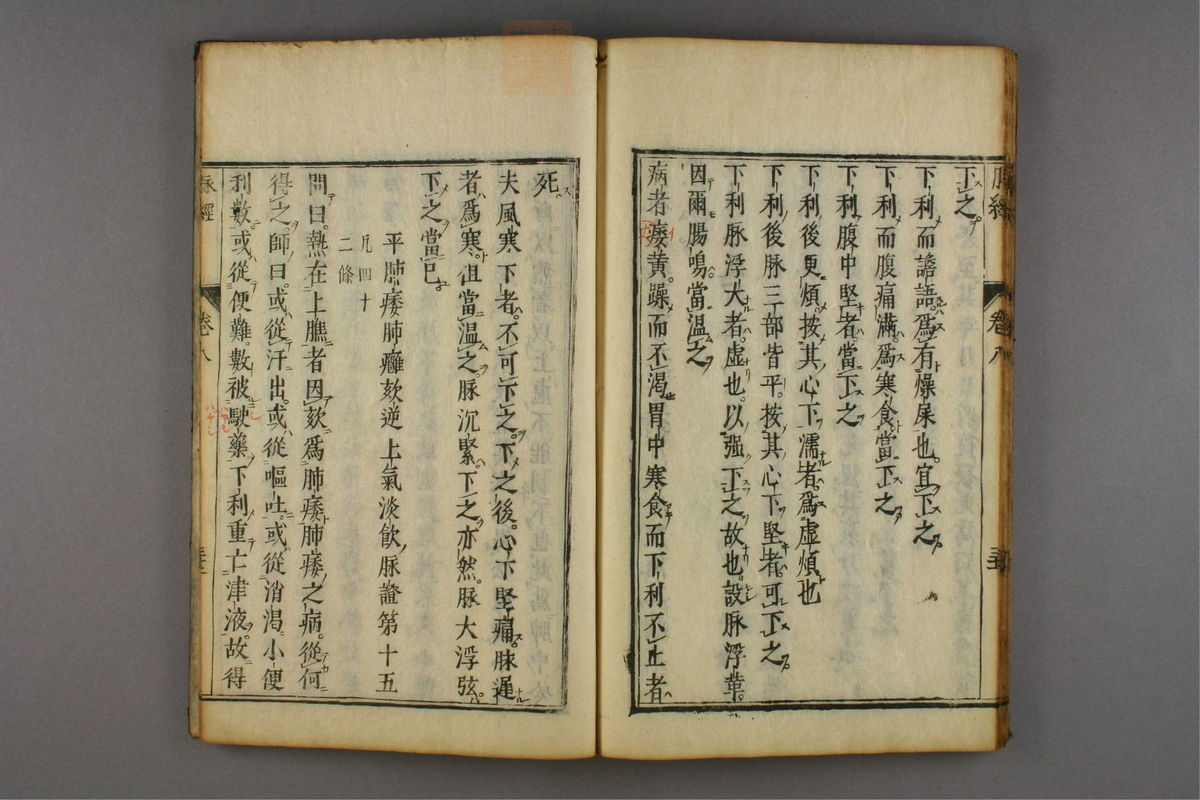 下之。
下利而譫語。爲有燥屎也。宜下之。
下利而腹痛滿。爲寒食。當下之。
下利腹中堅者。當下之
下利後更煩。按其心下濡者。爲虛煩也
下利後脉三部皆平。按其心下堅者。可下之。
下利脉浮大者。虛也。以强下之故也。設脉浮革。
因爾腸鳴。當温之
病者痿黄。躁而不渴。胃中寒食而下利不止者
死。
夫風寒下者。不可下之。下之後。心下堅痛。脉遲
者爲寒。但當温之。脉沉緊。下之亦然。脉大浮弦。
下之當已。
平肺痿肺癰欬逆上氣淡飲脉證第十五
凡四十
二條
問曰。熱在上膲者因欬爲肺痿。肺痿之病。從何
得之。師曰。或從汗出。或從嘔吐。或從消渴。小便
利數。或從便難。數被駛藥下利。重亡津液。故得
脉經
卷八